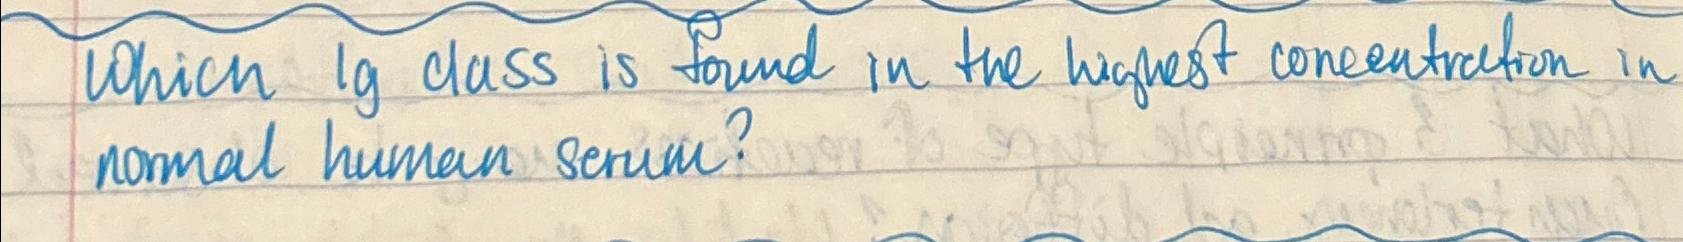 Which Ig class is found in the highest concentration in
normal human serum?